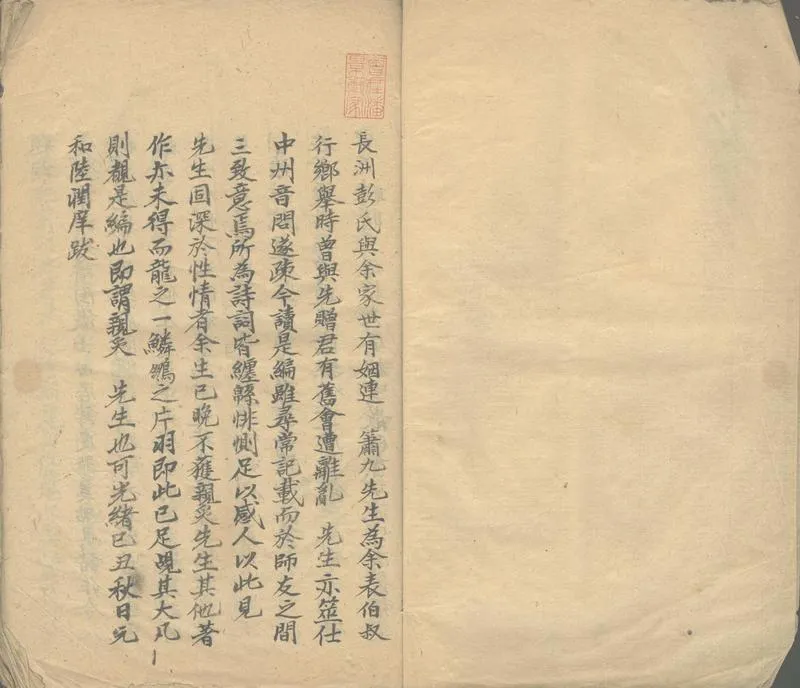 長洲彭氏與余家世有姻連　簫九先生為余表伯叔
行鄉舉時曾與先贈君有舊會遭離亂　先生亦筮仕
中州音問遂疎今讀是編雖尋常記載而於師友之間
三致意焉所為詩詞皆纏緜悱惻足以感人以此見
先生固深於性情者余生已晚不獲親炙先生其他著
作亦未得而龍之一鱗鵷之片羽即此已足覘其大凡
則覩是編也即謂親炙　先生也可光緒己丑秋日元
和陸潤庠跋